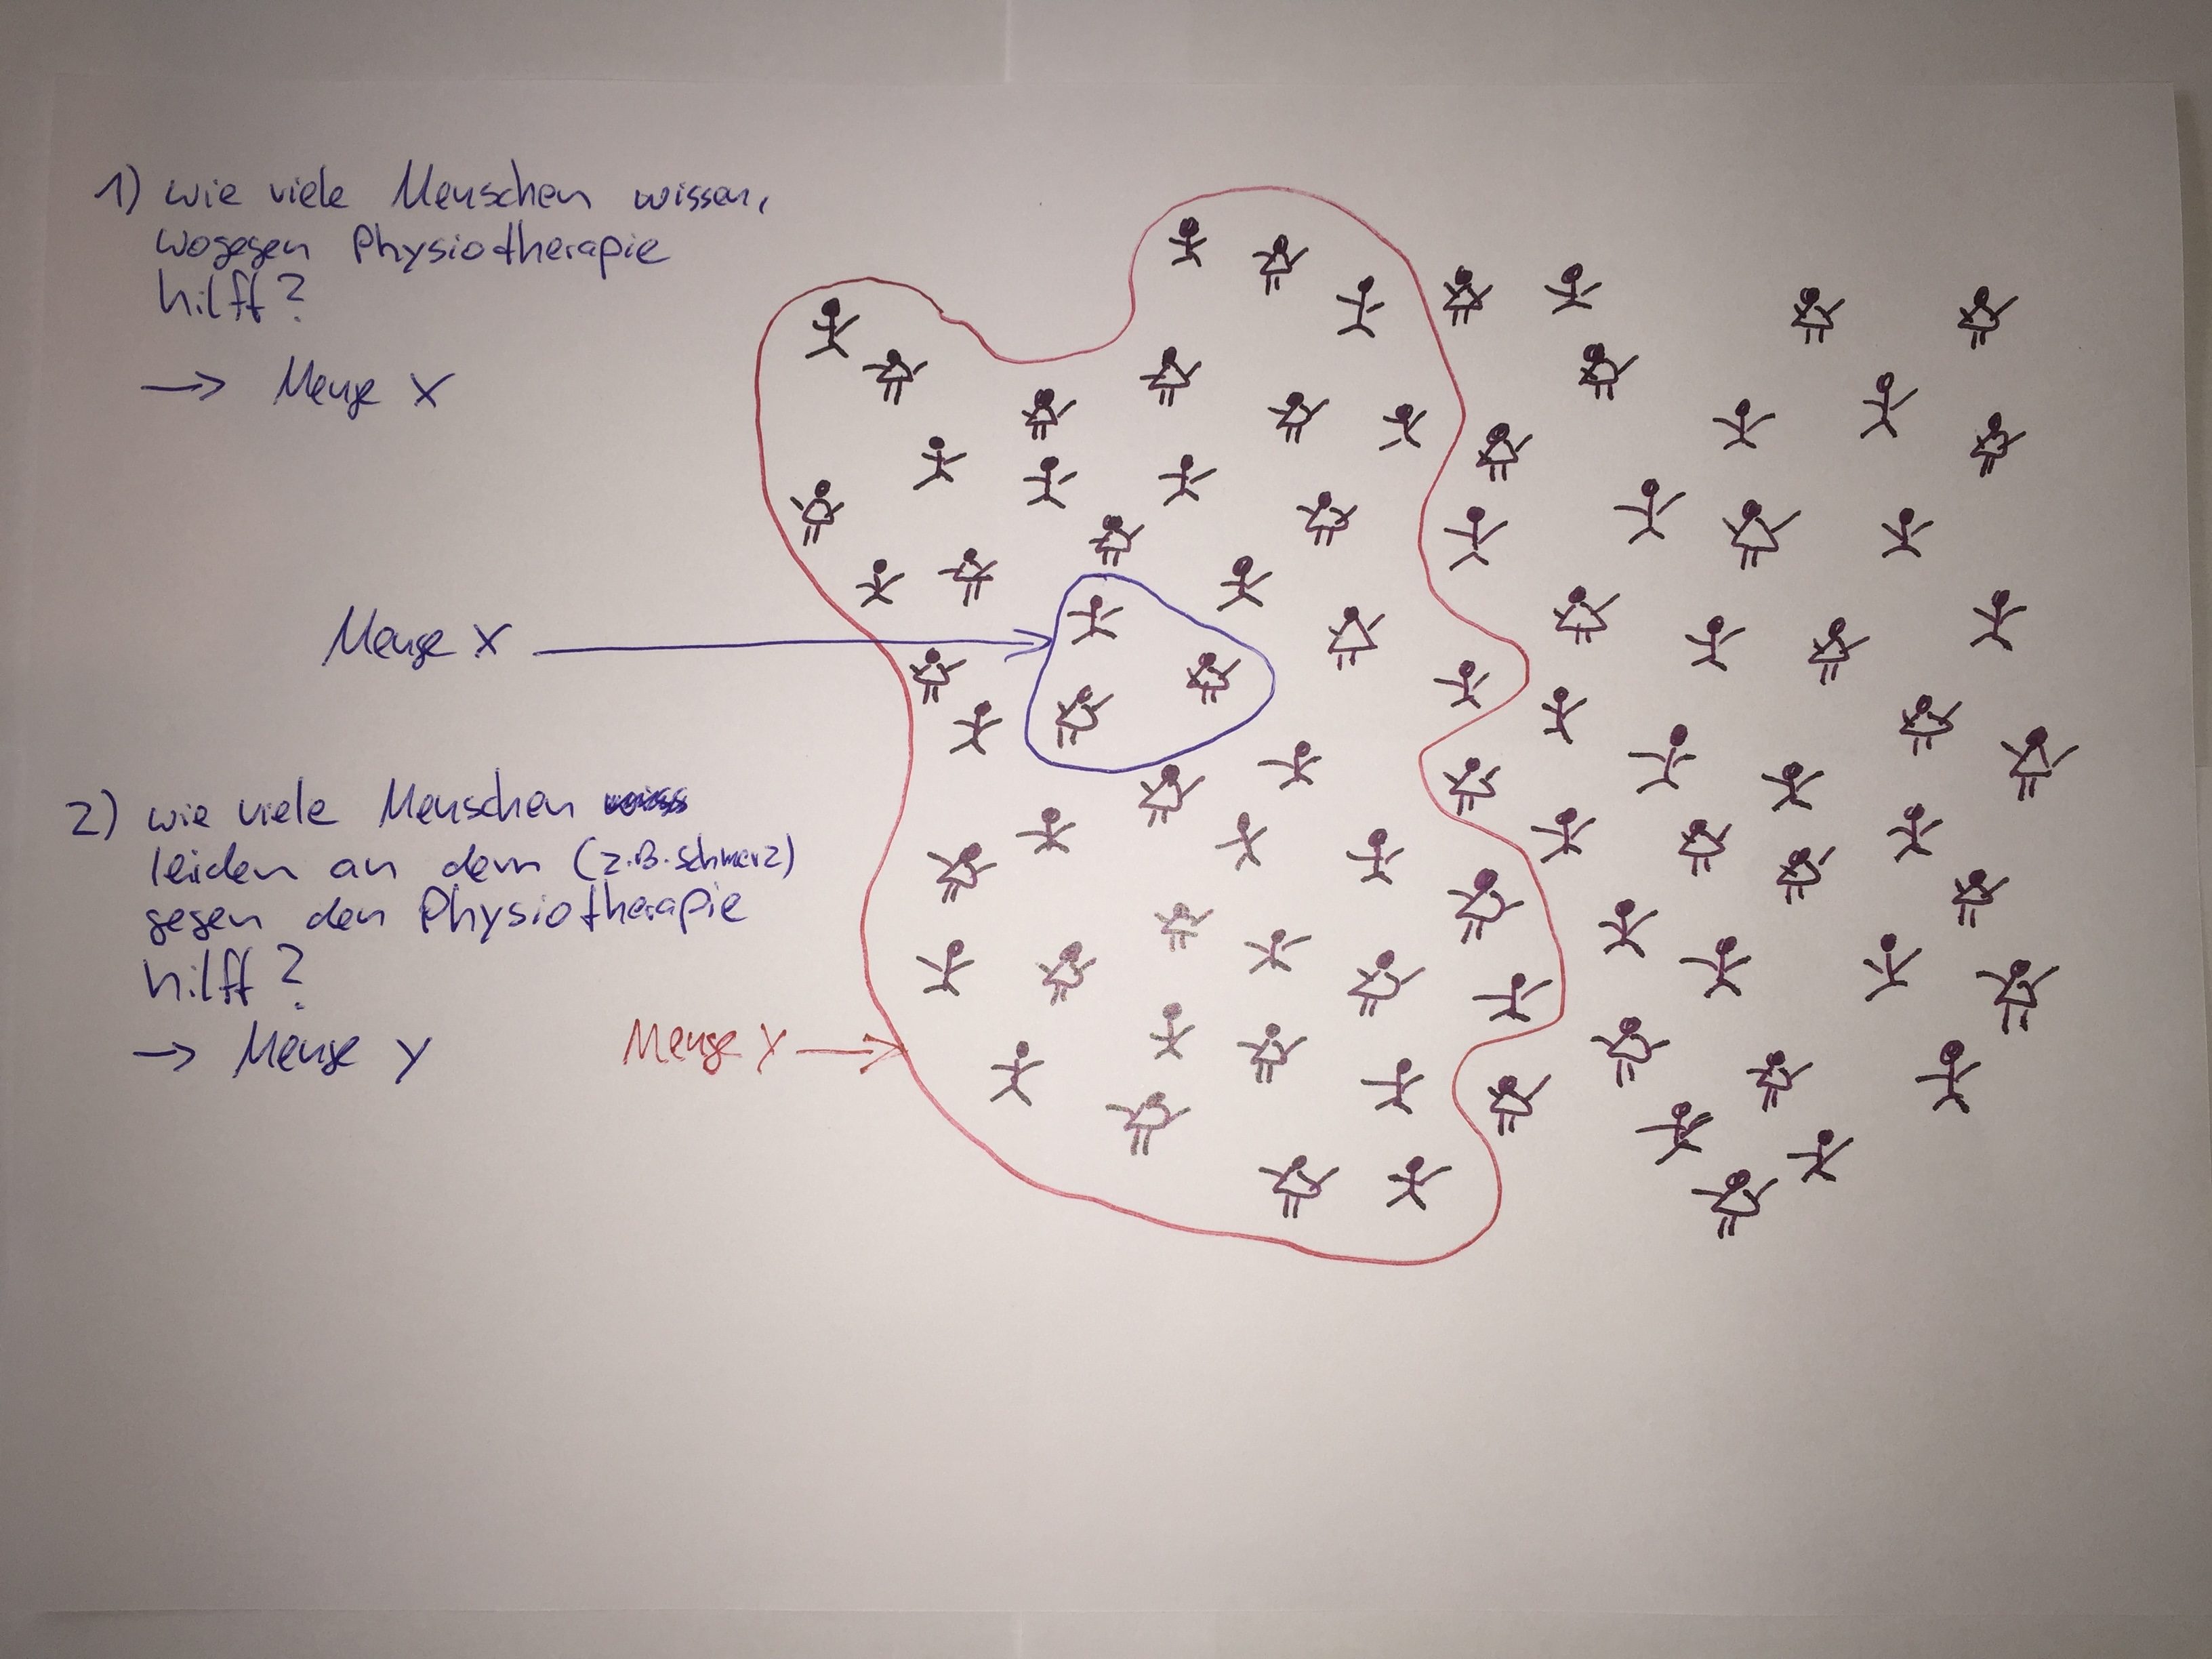 1) wie viele Menschen wissen,
wogegen Physiotherapie
hilft?
→ Menge X
Menge X
2) wie viele Menschen
leiden an dem (z.B. Schmerz)
gegen den Physiotherapie
hilft?
→ Menge y
Menge Y